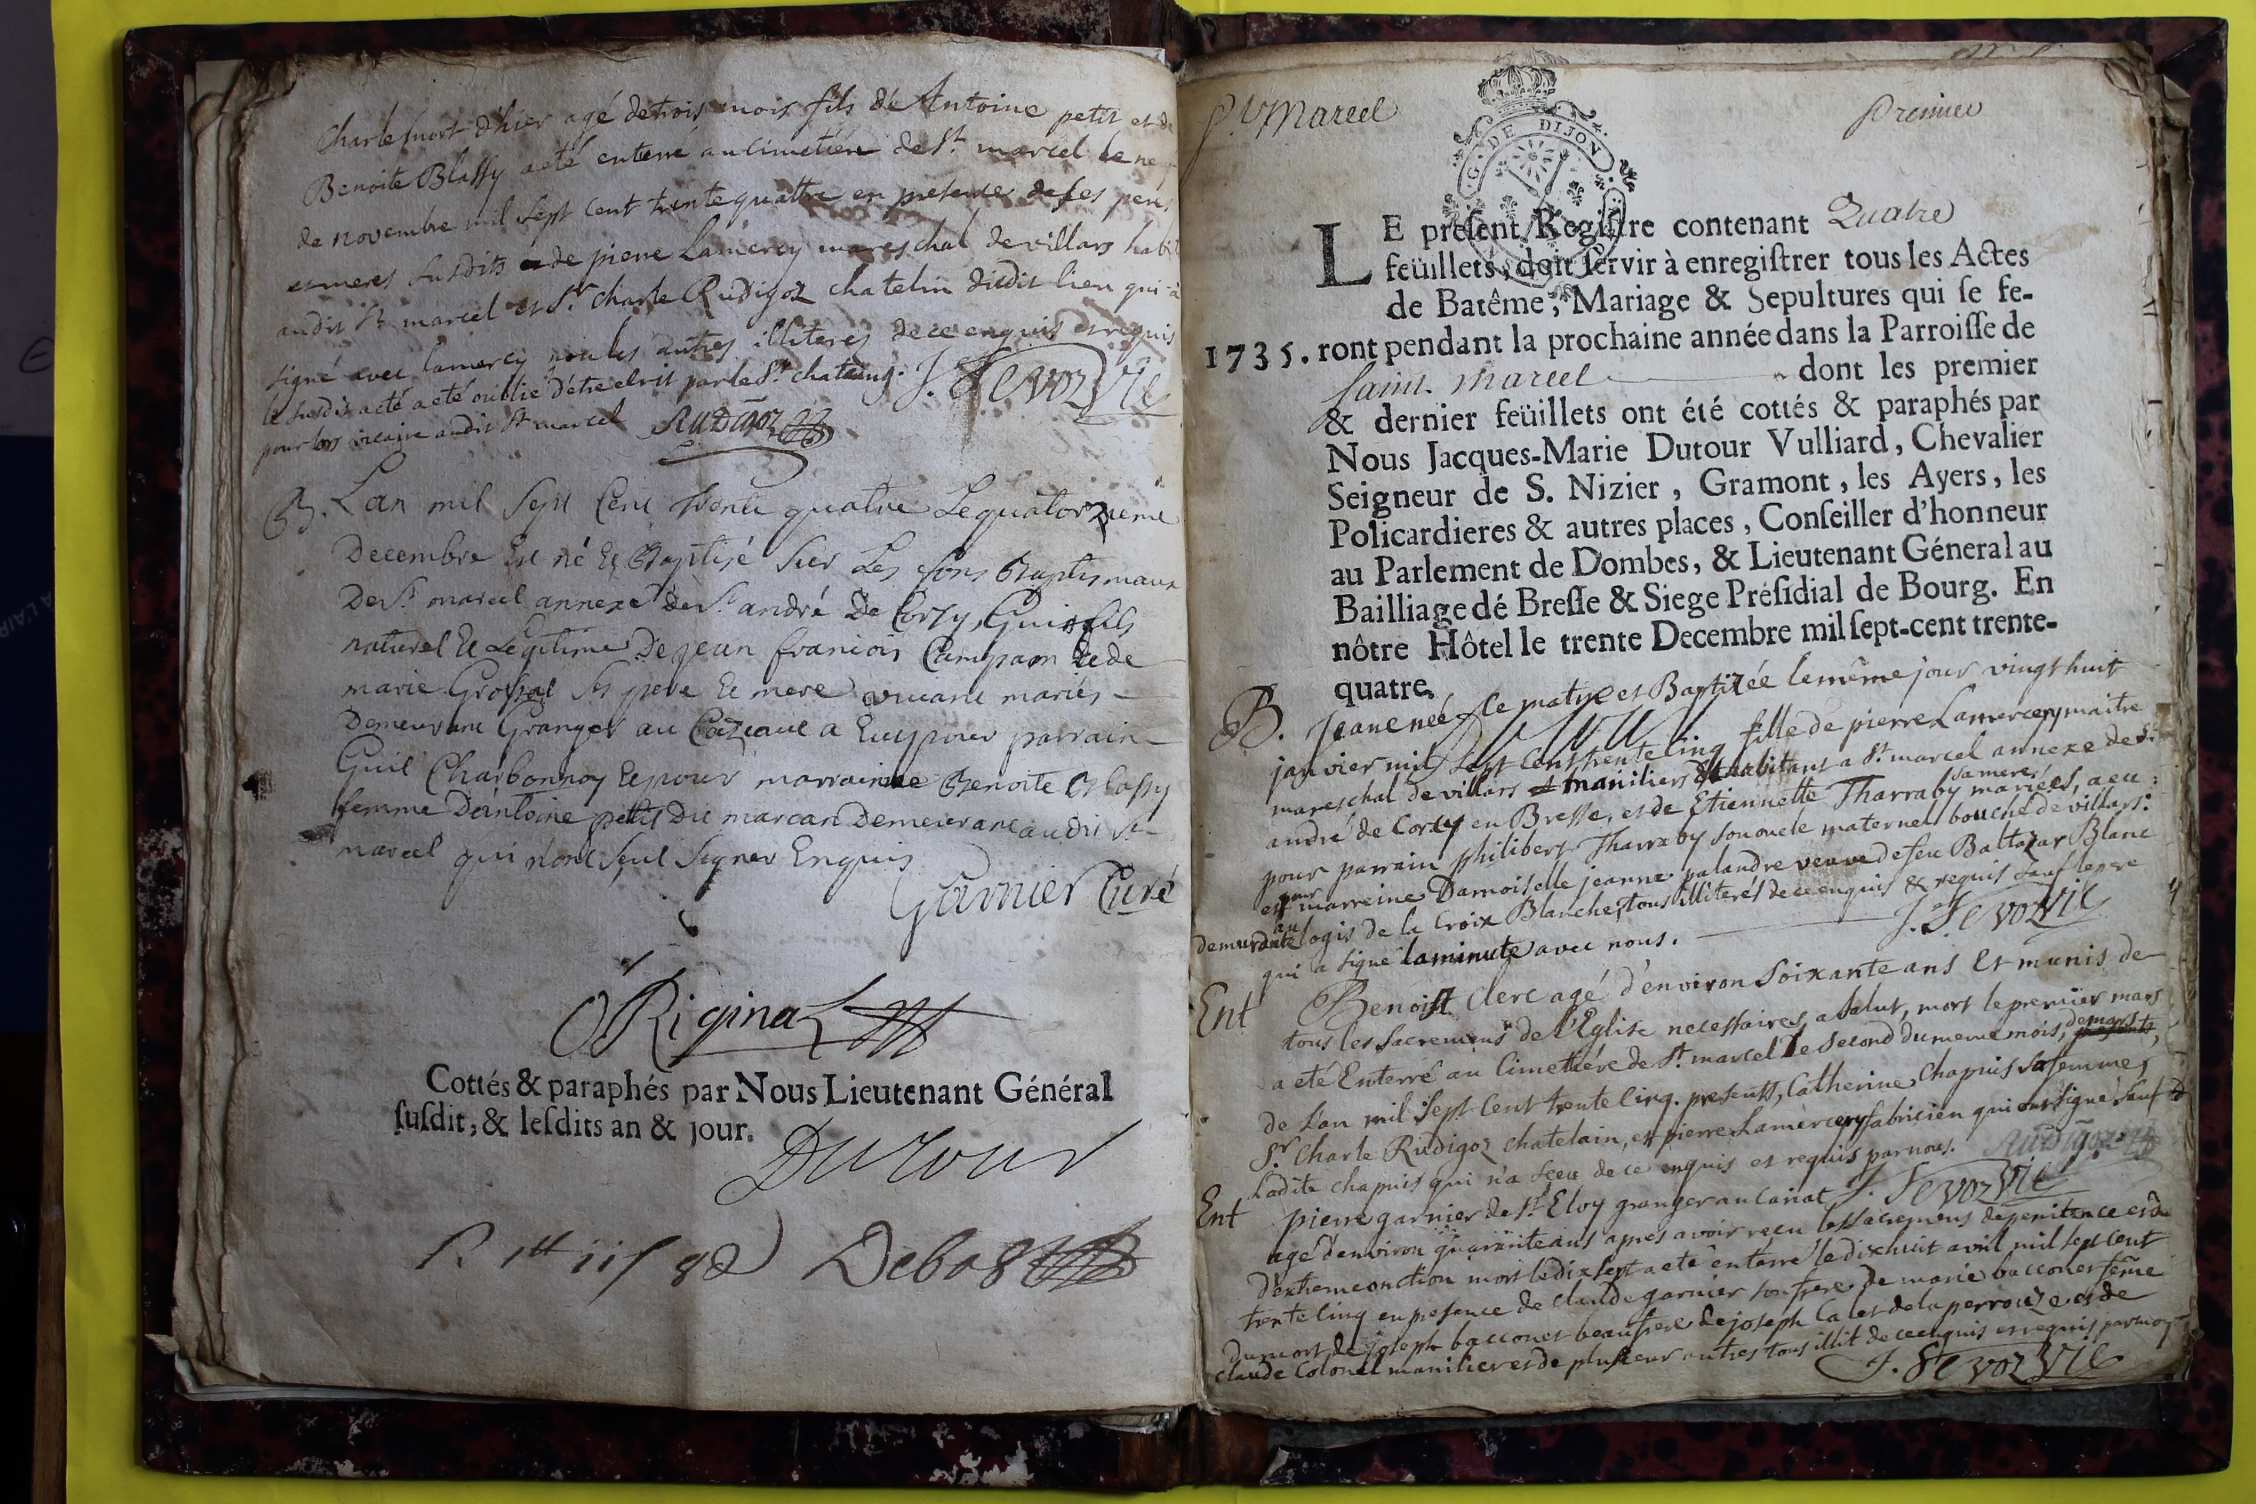 Charle mort d'hier agé de trois mois fils de Antoine petit et de
Benoite Blassy a eté enterré au cimetière de St marcel le
de novembre mil sept cent trente quattre en presence de ses peres
et meres susdits de pierre Lamercy mareschal de villars habit
audit St marcel et Sr Charle Rudigoz chatelin dudit lieu qui
signé avec lamercy non les autres illiteres de ce enquis et requis
le susdit acté a eté oublié d'être ecrit par le Sr chataing. J. Sevoz Vic
pour lors vicaire audit St marcel Rudigoz
B. Lan mil sept Cent trente quatre Le quatorzieme
Decembre Est né Et Baptisé sur Les fons Baptismaux
De St marcel annexe de St andré De Corcy, Gui fils
naturel Et Legitime De jean francois Campaon Et de
marie Grossat ses pere Et mere vivant mariés
Demeurant Granger au Cazeaut a Eu pour parrain
Gui Charbonnoy Et pour marrainne Benoite Blassy
femme D'antoine petit Du marcan Demeurant audit St
marcel qui n'ont sçut signer Enquis
Garnier Curé
ORiginal
Cottés & paraphés par Nous Lieutenant Général
ſuſdit, & leſdits an & jour.
Dutour
R. 1tt 11 s 9 d Debost
St Marcel
Premier
G. DE DIJON
LE préſent Regiſtre contenant Quatre
feüillets, doit ſervir à enregiſtrer tous les Actes
de Batême, Mariage & Sepultures qui ſe fe-
1735. ront pendant la prochaine année dans la Parroiſſe de
Saint Marcel dont les premier
& dernier feüillets ont été cottés & paraphés par
Nous Jacques-Marie Dutour Vulliard, Chevalier
Seigneur de S. Nizier, Gramont, les Ayers, les
Policardieres & autres places, Conſeiller d'honneur
au Parlement de Dombes, & Lieutenant Géneral au
Bailliage dé Breſſe & Siege Préſidial de Bourg. En
nôtre Hôtel le trente Decembre mil ſept-cent trente-
quatre.
B. Jeane née ce matin et Baptizée le même jour vingt huit
janvier mil sept cent trente cinq fille de pierre Lamercery maitre
mareschal de villars maniliers & habitant a St marcel annexe de St
andré de Corcy en Bresse, et de Etiennette Tharraby sa mere mariées, a eu
pour parrain philibert Tharraby son oncle maternel bouché de villars:
et pour marreine Damoiselle jeanne palandre veuve de feu Baltazar Blanc
demurante au logis de la Croix Blanche, tous illiterés de ce enquis & requis sauf le pere
qui a signé la minute avec nous. J. Sevoz Vic
Ent Benoist Clerc agé d'environ soixante ans Et munis de
tous les sacremens de l'Eglise necessaires a salut, mort le premier mars
a eté Enterré au Cimetiére de St marcel le second du meme mois, de mars,
de L'an mil sept cent trente cinq. presents, Catherine Chapuis sa femme,
Sr Charle Rudigoz chatelain, et pierre Lamercery fabricien qui ont signé sauf
Ladite chapuis qui n'a sceu de ce enquis et requis par nous. Rudigoz
J. Sevoz Vic
Ent pierre garnier de St Eloy granger au Cariat
agé d'environ quarante ans apres avoir reçu les sacremens de penitence et de
D'extremeonction mort le dixsept a eté enterré le dixhuit avril mil sept cent
trente cinq en presence de claude garnier son frere de marie bacconet feme
du mort de joseph bacconet beaufrere de joseph Calet de la perrouze et de
claude Colonel manilier et de plusieur autres tous illit de ce enquis et requis par moy
J. Sevoz Vic